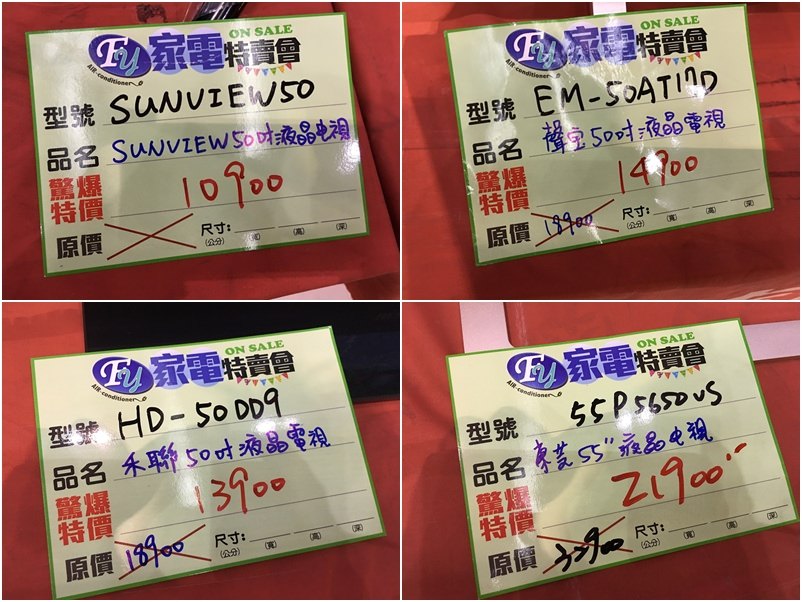 ON SALE
Fy 家電特賣會
AIR-conditioner
型號 SUNVIEW50
品名 SUNVIEW 50吋液晶电視
驚爆特價 10900
原價 尺寸:(公分) (寬) (高) (深)
ON SALE
Fy 家電特賣會
AIR-conditioner
型號 EM-50AT17D
品名 聲宝50吋液晶電視
驚爆特價 14900
原價 18900 尺寸:(公分) (寬) (高) (深)
ON SALE
Fy 家電特賣會
AIR-conditioner
型號 HD-50DD9
品名 禾聯50吋液晶電視
驚爆特價 13900
原價 18900 尺寸:(公分) (寬) (高) (深)
ON SALE
Fy 家電特賣會
AIR-conditioner
型號 55P5650VS
品名 東芝55"液晶电視
驚爆特價 21900
原價 尺寸:(公分) (寬) (高) (深)